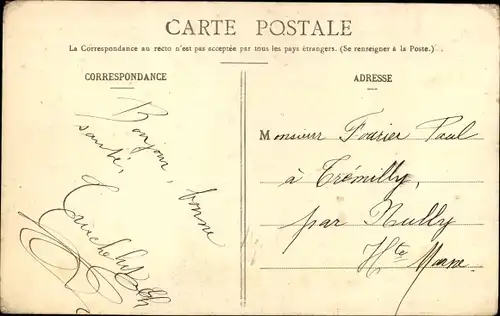 CARTE POSTALE
La Correspondance au recto n'est pas acceptée par tous les pays étrangers. (Se renseigner à la Poste.)
CORRESPONDANCE
Bonjour, bonne
santé,
ADRESSE
Monsieur Fourier Paul
à Trémilly,
par Nully
Hte Marne